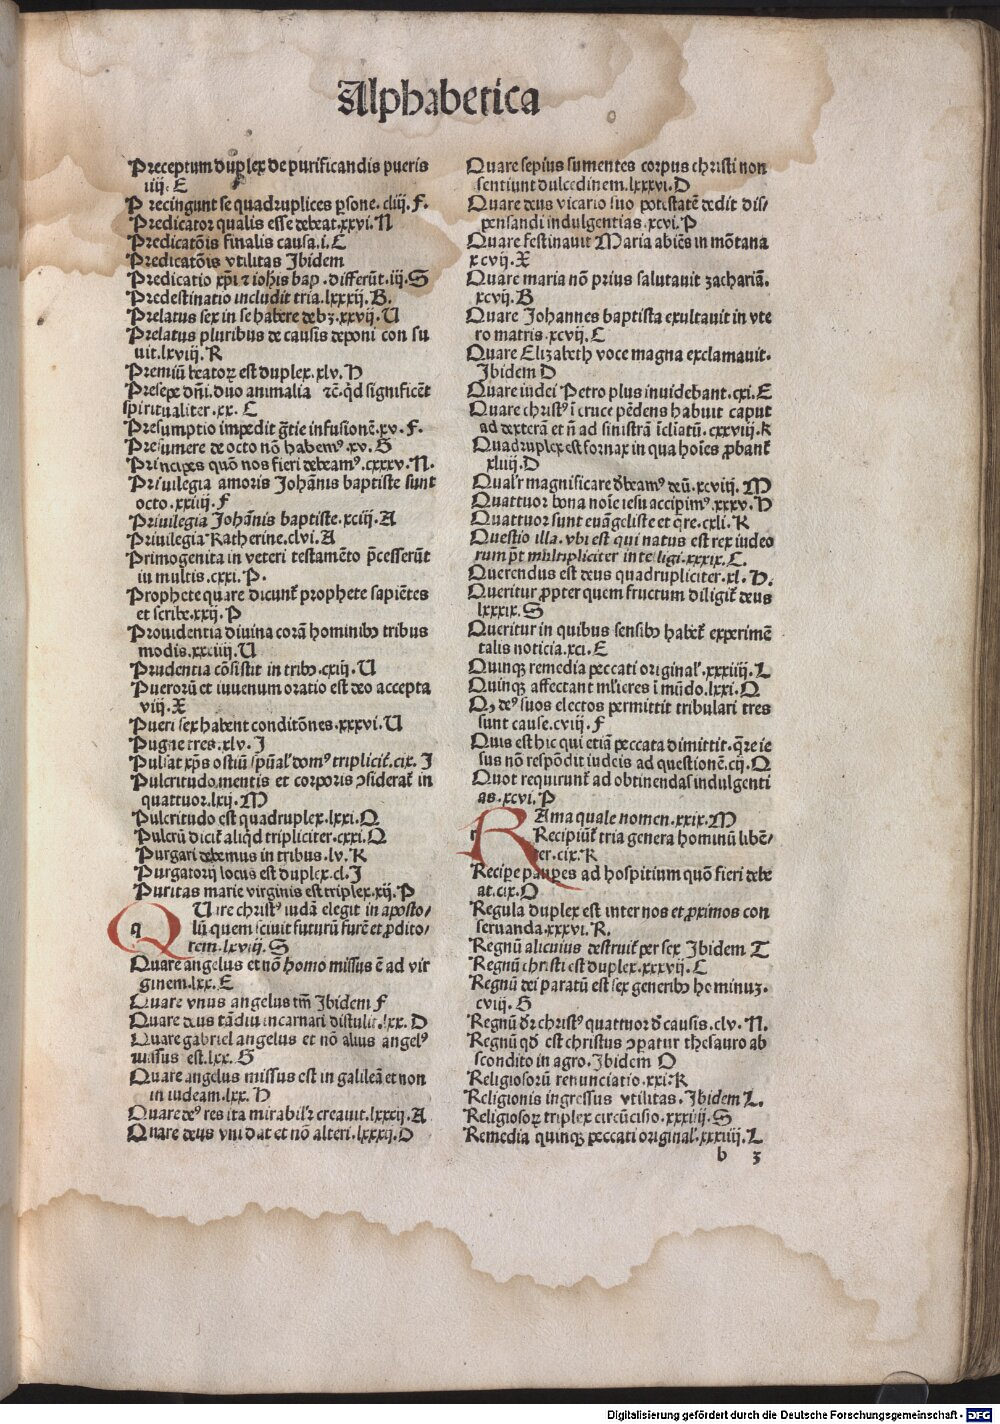 Alphabetica
Preceptum duplex de purificandis pueris
iiij. E
Precingunt se quadruplices ꝑsone. cliij. F.
Predicator qualis esse debeat. xxvi. N
Predicatōis finalis causa. i. C
Predicatōis vtilitas Ibidem
Predicatio xp̄i ⁊ ioh̄is bap. differūt. iij. S
Predestinatio includit tria. lxxxij. B.
Prelatus sex in se habere debꝫ. xxvij. V
Prelatus pluribus de causis deponi con su
uit. lxviij. R
Premiū beatoꝝ est duplex. xlv. H
Presepe dn̄i. duo animalia ⁊c̄. qd̄ significēt
spiritualiter. xx. C
Presumptio impedit gr̄tie infusionē. xv. F.
Presumere de octo nō habemꝰ. xv. G
Principes quō nos fieri debeamꝰ. cxxxv. N.
Priuilegia amoris Johānis baptiste sunt
octo. xxiiij. F
Priuilegia Johānis baptiste. xciij. A
Priuilegia Katherine. clvi. A
Primogenita in veteri testamēto p̄cesserūt
in multis. cxxi. P.
Prophete quare dicunt̄ prophete sapiētes
et scribe. xxij. P
Prouidentia diuina corā hominibꝰ tribus
modis. xxxiiij. V
Prudentia cōsistit in tribꝰ. cxiij. V
Puerorū et iuuenum oratio est deo accepta
viij. X
Pueri sex habent conditōnes. xxxvi. V
Pugne tres. xlv. J
Pulsat xp̄s ostiū spūal̓ domꝰ triplicit̄. cix. J
Pulcritudo mentis et corporis ꝯsiderat̄ in
quattuor. lxij. M
Pulcritudo est quadruplex. lxxi. Q
Pulcrū dicit̄ aliqd̄ tripliciter. cxxi. Q
Purgari debemus in tribus. lv. K
Purgatorij locus est duplex. cl. J
Puritas marie virginis est triplex. xij. P
QUare christꝰ iudā elegit in aposto/
lū quem sciuit futurū furē et ꝓdito/
rem. lxviij. S
Quare angelus et nō homo missus ē ad vir
ginem. lxx. E
Quare vnus angelus tm̄ Ibidem F
Quare deus tādiu incarnari distulit. lxx. D
Quare gabriel angelus et nō alius angelꝰ
missus est. lxx. G
Quare angelus missus est in galileā et non
in iudeam. lxx. H
Quare deꝰ res ita mirabilr̄ creauit. lxxxij. A
Quare deus vni dat et nō alteri. lxxxij. D
Quare sepius sumentes corpus christi non
sentiunt dulcedinem. lxxxvi. D
Quare deus vicario suo potestatē dedit dis/
pensandi indulgentias. xcvi. P
Quare festinauit Maria abiēs in mōtana
xcvij. X
Quare maria nō prius salutauit zachariā.
xcvij. B
Quare Johannes baptista exultauit in vte
ro matris. xcvij. C
Quare Elizabeth voce magna exclamauit.
Ibidem D
Quare iudei Petro plus inuidebant. cxi. E
Quare christꝰ ī cruce pēdens habuit caput
ad dexterā et n̄ ad sinistrā īcliatū. cxxviij. K
Quadruplex est fornax in qua hoīes ꝓbant̄
xliiij. D
Qualr̄ magnificare dēbeamꝰ deū. xcviij. M
Quattuor bona noīe iesu accipimꝰ. xxxv. H
Quattuor sunt euāgeliste et qr̄e. cxli. K
Questio illa. vbi est qui natus est rex iudeo
rum p̄t multipliciter intelligi. xxxix. C.
Querendus est deus quadrupliciter. xl. H.
Queritur ꝓpter quem fructum diligit̄ deus
lxxxix. S
Queritur in quibus sensibꝰ habet̄ experimē
talis noticia. xci. E
Quinqꝫ remedia peccati original̓. xxxiiij. L
Quinqꝫ affectant ml̓ieres ī mūdo. lxxi. Q
Qꝫ deꝰ suos electos permittit tribulari tres
sunt cause. cviij. F
Quis est hic qui etiā peccata dimittit. q̄re ie
sus nō respōdit iudeis ad questionē. cij. Q
Quot requirunt̄ ad obtinendas indulgenti
as. xcvi. P
RAma quale nomen. xxix. M
Recipiūt̄ tria genera hominū libē/
ter. cix. K
Recipe paupes ad hospitium quō fieri debe
at. cix. O
Regula duplex est inter nos et ꝓximos con
seruanda. xxxvi. R.
Regnū alicuius destruit̄ per sex Ibidem T
Regnū christi est duplex. xxxvij. C
Regnū dei paratū est sex generibꝰ hominuꝫ.
cviij. G
Regnū dr̄ christꝰ quattuor d̄ causis. clv. N.
Regnū qd̄ est christus ꝯparatur thesauro ab
scondito in agro. Ibidem O
Religiosorū renunciatio. xxi. K
Religionis ingressus vtilitas. Ibidem L.
Religiosoꝝ triplex circūcisio. xxxiiij. S
Remedia quinqꝫ peccati original̓. xxxiiij. L
b 3
Digitalisierung gefördert durch die Deutsche Forschungsgemeinschaft - DFG